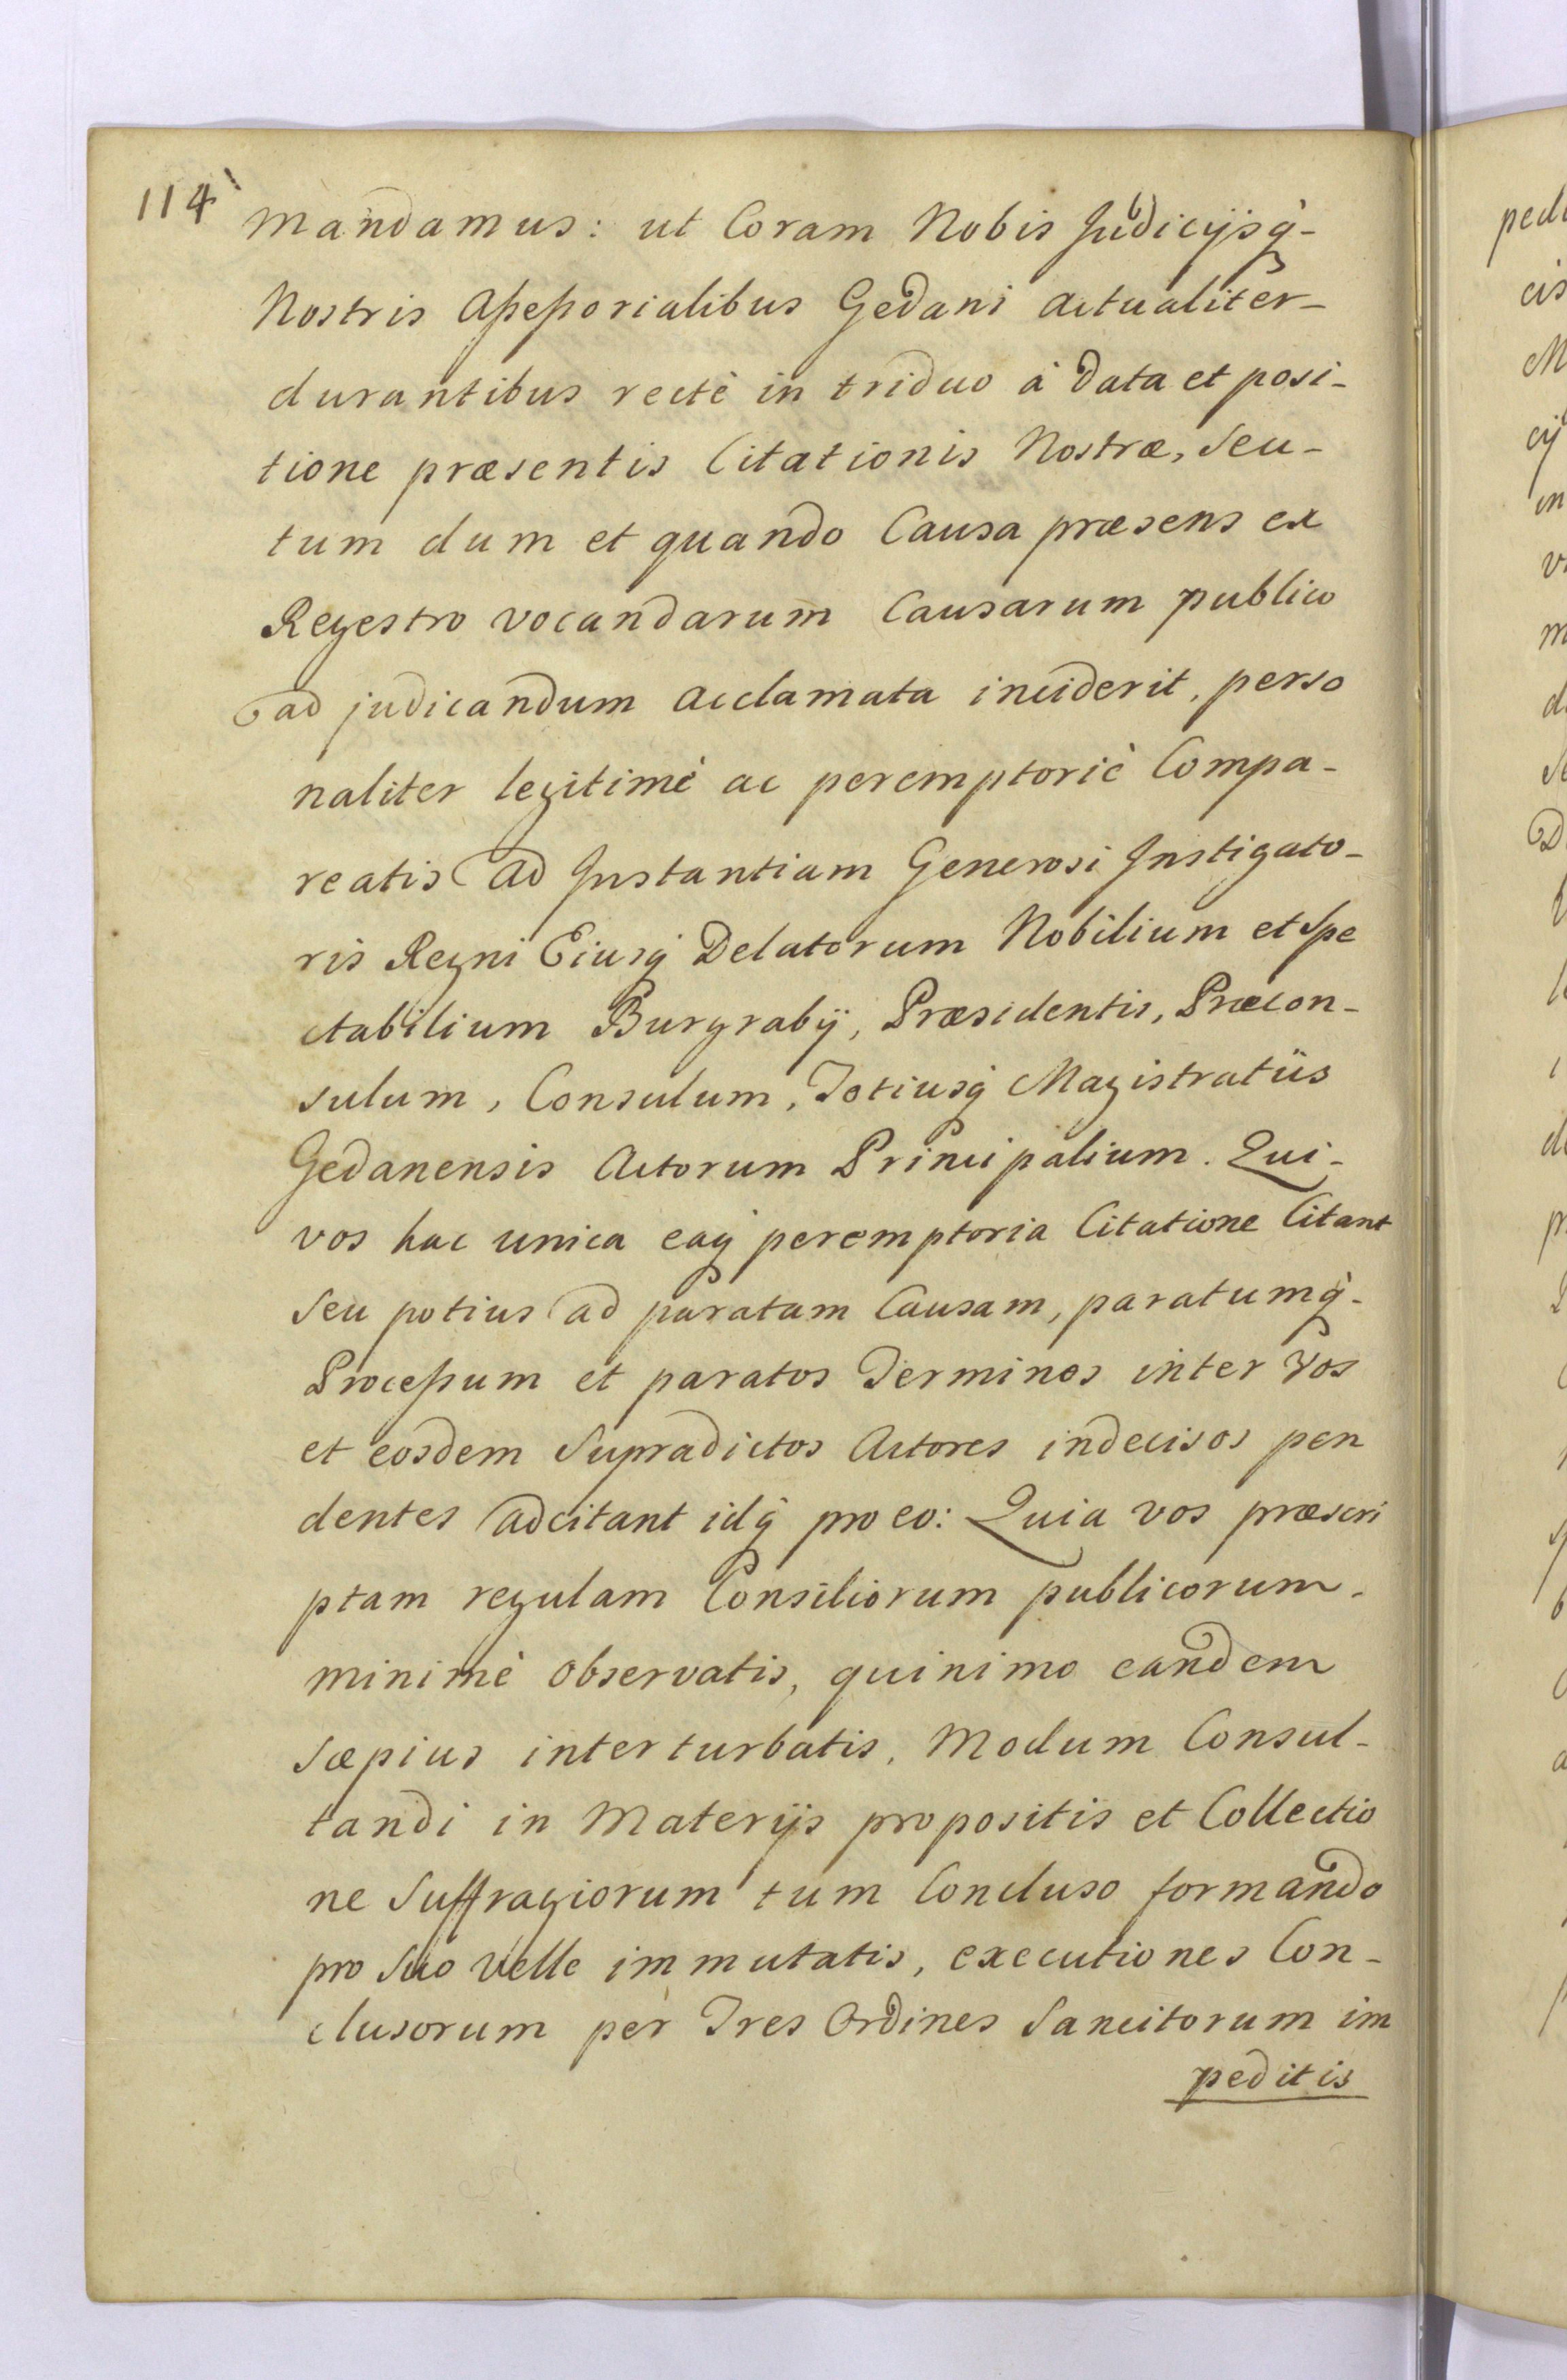 114
mandamus: ut Coram Nobis Judicijsq̀-
Nostris Assessorialibus Gedani actualiter-
durantibus rectè in triduo à data et posi-
tione præsentis Citationis Nostræ, seu-
tum dum et quando Causa præsens ex
Regestro vocandarum Causarum publico
ad judicandum acclamata inciderit, perso
naliter legitimè ac peremptoriè Compa-
reatis ad Instantiam Generosi Instigato-
ris Regni Eiusq̀ Delatorum Nobilium et Spe
ctabilium Burgrabij, Præsidentis, Præcon-
sulum, Consulum, Totiusq̀ Magistratüs
Gedanensis Actorum Principalium. Qui-
vos hac unica eaq̀ peremptoria Citatione Citant
seu potius ad paratam Causam, paratumq̀-
Processum et paratos Terminos inter Vos
et eosdem Supradictos Actores indecisos pen
dentes adcitant idq̀ pro eo: Quia vos præscri
ptam regulam Consiliorum publicorum.
minimè observatis, quinimo eandem
sæpius interturbatis, Modum Consul-
tandi in Materijs propositis et Collectio
ne Suffragiorum tum Concluso formando
pro Suo velle immutatis, executiones Con-
clusorum per Tres Ordines Sancitorum im
peditis